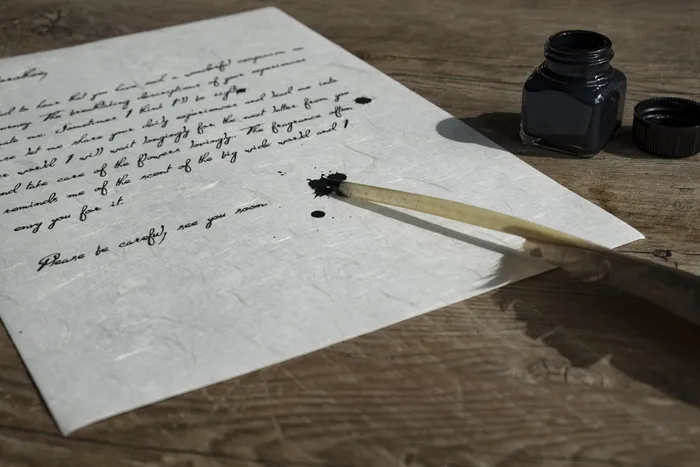 to hear that you have had a wonderful
The breathtaking descriptions of your experiences
me. Sometimes I think I'll be right
let me share your daily experiences and lead me into
world. I will wait longingly for the next letter from you
and take care of the flowers lovingly. The fragrance often
reminds me of the scent of the big wide world and I
envy you for it.
Please be careful, see you soon